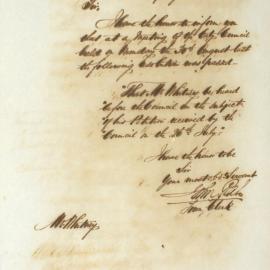 Sir,
I have the honor to inform you
that at a Meeting of the City Council
held on Monday the 30th August last
the following resolution was passed
"That Mr Whitney be heard
before the Council on the subject
of his Petition received by the
Council on the 26th July."
I have the honor to be
Sir
Your most obt Servant
Town Clerk
Mr Whitney